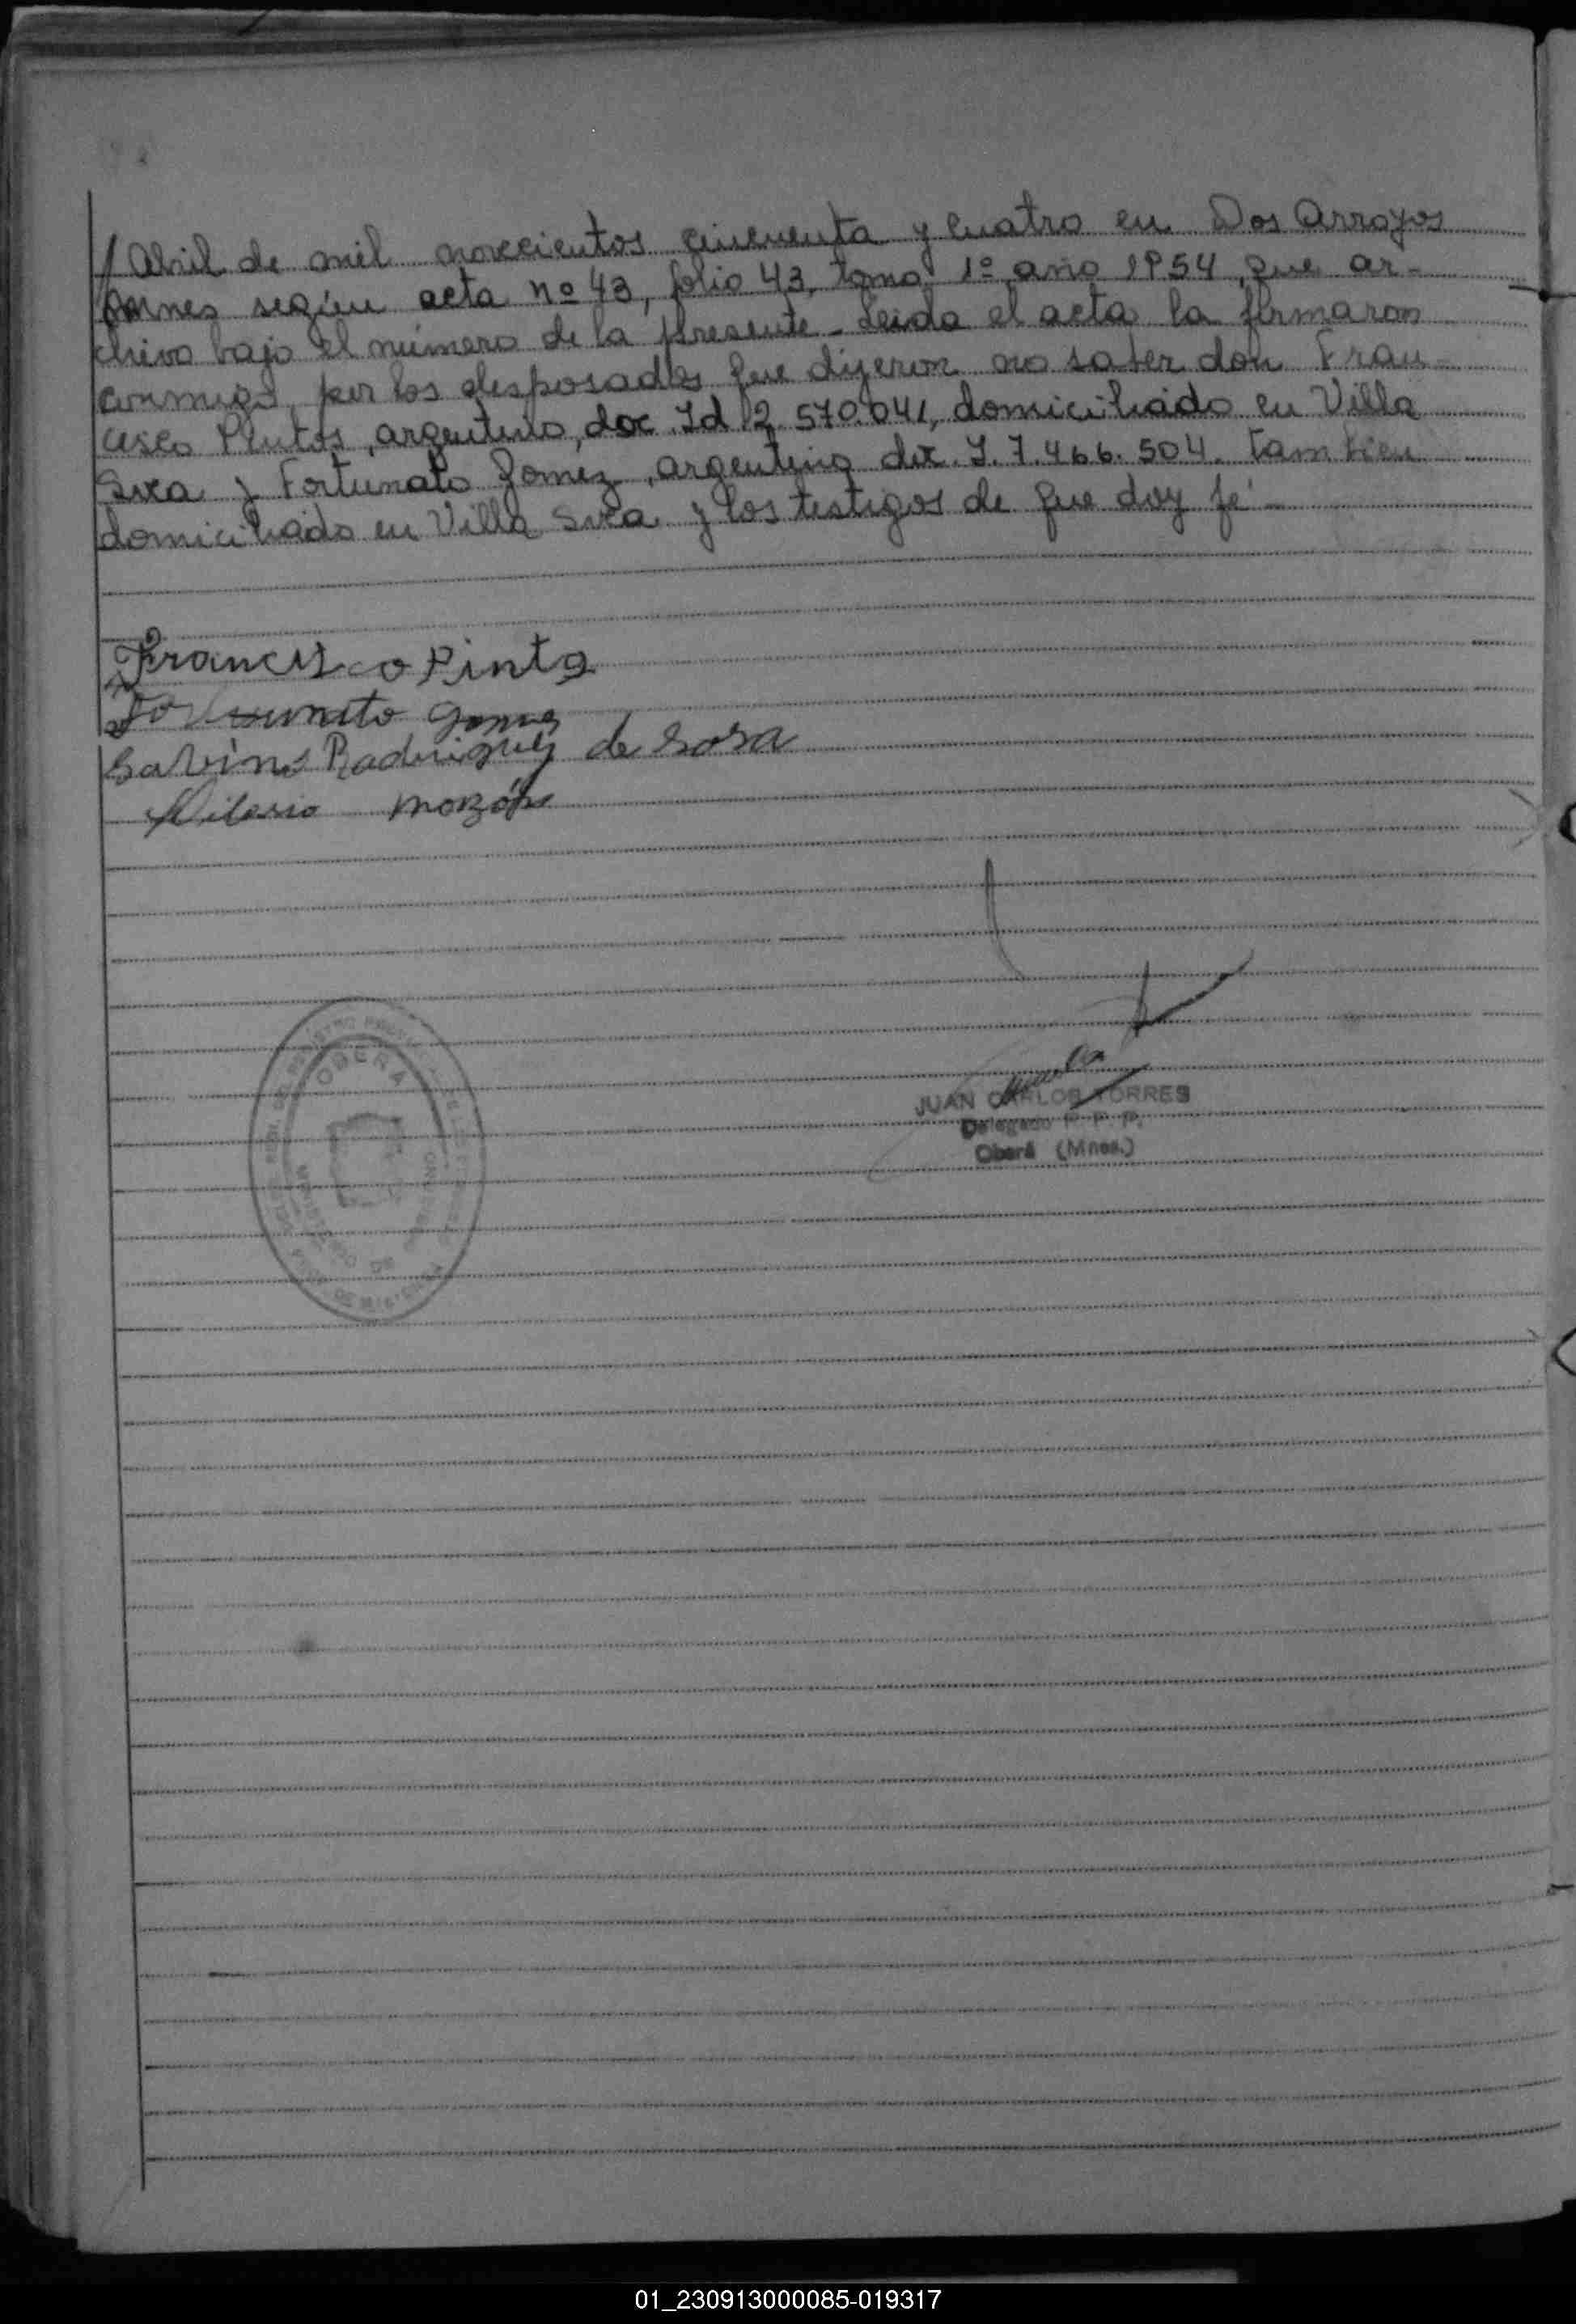 / Abril de mil novecientos cincuenta y cuatro en Dos Arroyos
Mnes según acta nº 43, folio 43, tomo 1º año 1954, que ar-
chivo bajo el número de la presente - Leida el acta la firmaron
conmigo, por los desposados que dijeron no saber don Fran-
cisco Pintos, argentino, doc. Id 2.570.041, domiciliado en Villa
Svea y Fortunato Gomez, argentino doc. I. 7.466.504. tambien
domiciliado en Villa Svea y los testigos de que doy fé -
Francisco Pinto
Gomez
Rodriguez de Sosa
Morzón
OBERA
MINISTERIO DE
DE MISIONES
JUAN CARLOS TORRES
Delegado R. P. P.
Oberá (Mnes.)
01_230913000085-019317